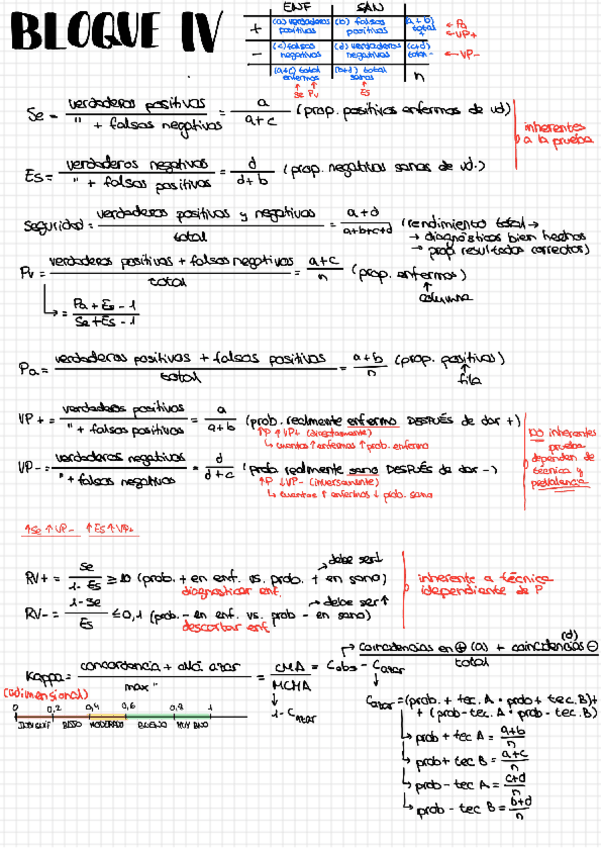 BLOQUE IV
ENF SAN
+ (a) verdaderos positivos (b) falsos positivos (a+b) total + ← Pa ← VP+
- (c) falsos negativos (d) verdaderos negativos (c+d) total - ← VP-
(a+c) total enfermos (b+d) total sanos n
↑ Se ↑ Pv ↑ Es
Se = verdaderos positivos / " + falsos negativos = a / a+c (prop. positivos enfermos de vd)
inherentes a la prueba
Es = verdaderos negativos / " + falsos positivos = d / d+b (prop. negativos sanos de vd.)
Seguridad = verdaderos positivos y negativos / total = a+d / a+b+c+d (rendimiento total →
→ diagnósticos bien hechos
→ prop. resultados correctos)
Pv = verdaderos positivos + falsos negativos / total = a+c / n (prop. enfermos)
↑ columna
↳ = Pa + Es - 1 / Se + Es - 1
Pa = verdaderos positivos + falsos positivos / total = a+b / n (prop. positivos)
↑ fila
VP+ = verdaderos positivos / " + falsos positivos = a / a+b (prob. realmente enfermo DESPUÉS de dar +)
↑P ↑VP+ (directamente)
↳ cuantos ↑ enfermos ↑ prob. enfermo
VP- = verdaderos negativos / " + falsos negativos = d / d+c (prob. realmente sano DESPUÉS de dar -)
↑P ↓VP- (inversamente)
↳ cuantos ↑ enfermos ↓ prob. sano
NO inherentes prueba dependen de técnica y prevalencia
↑Se ↑VP- ↑Es ↑VP+
→ debe ser↓
RV+ = Se / 1-Es ≥ 10 (prob. + en enf. vs. prob. + en sano)
diagnosticar enf.
→ debe ser ↑
RV- = 1-Se / Es ≤ 0,1 (prob. - en enf. vs. prob - en sano)
descartar enf.
inherente a técnica
idependiente de P
Kappa = concordancia + allá azar / max " = CMA / MCMA = Cobs - Cazar
↓ 1- Cazar
→ coincidencias en ⊕ (a) + coincidencias ⊖ (d) / total
Cazar = (prob. + tec. A · prob + tec. B) +
+ (prob - tec. A · prob - tec. B)
↳ prob + tec A = a+b / n
↳ prob + tec B = a+c / n
↳ prob - tec A = c+d / n
↳ prob - tec B = b+d / n
(adimensional)
0 0,2 0,4 0,6 0,8 1
BAJO MODERADO BUENO MUY BNO